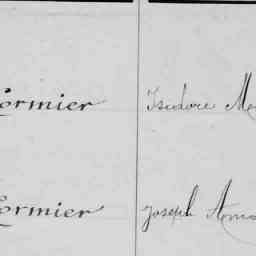 Cormier Isidore
Cormier Joseph